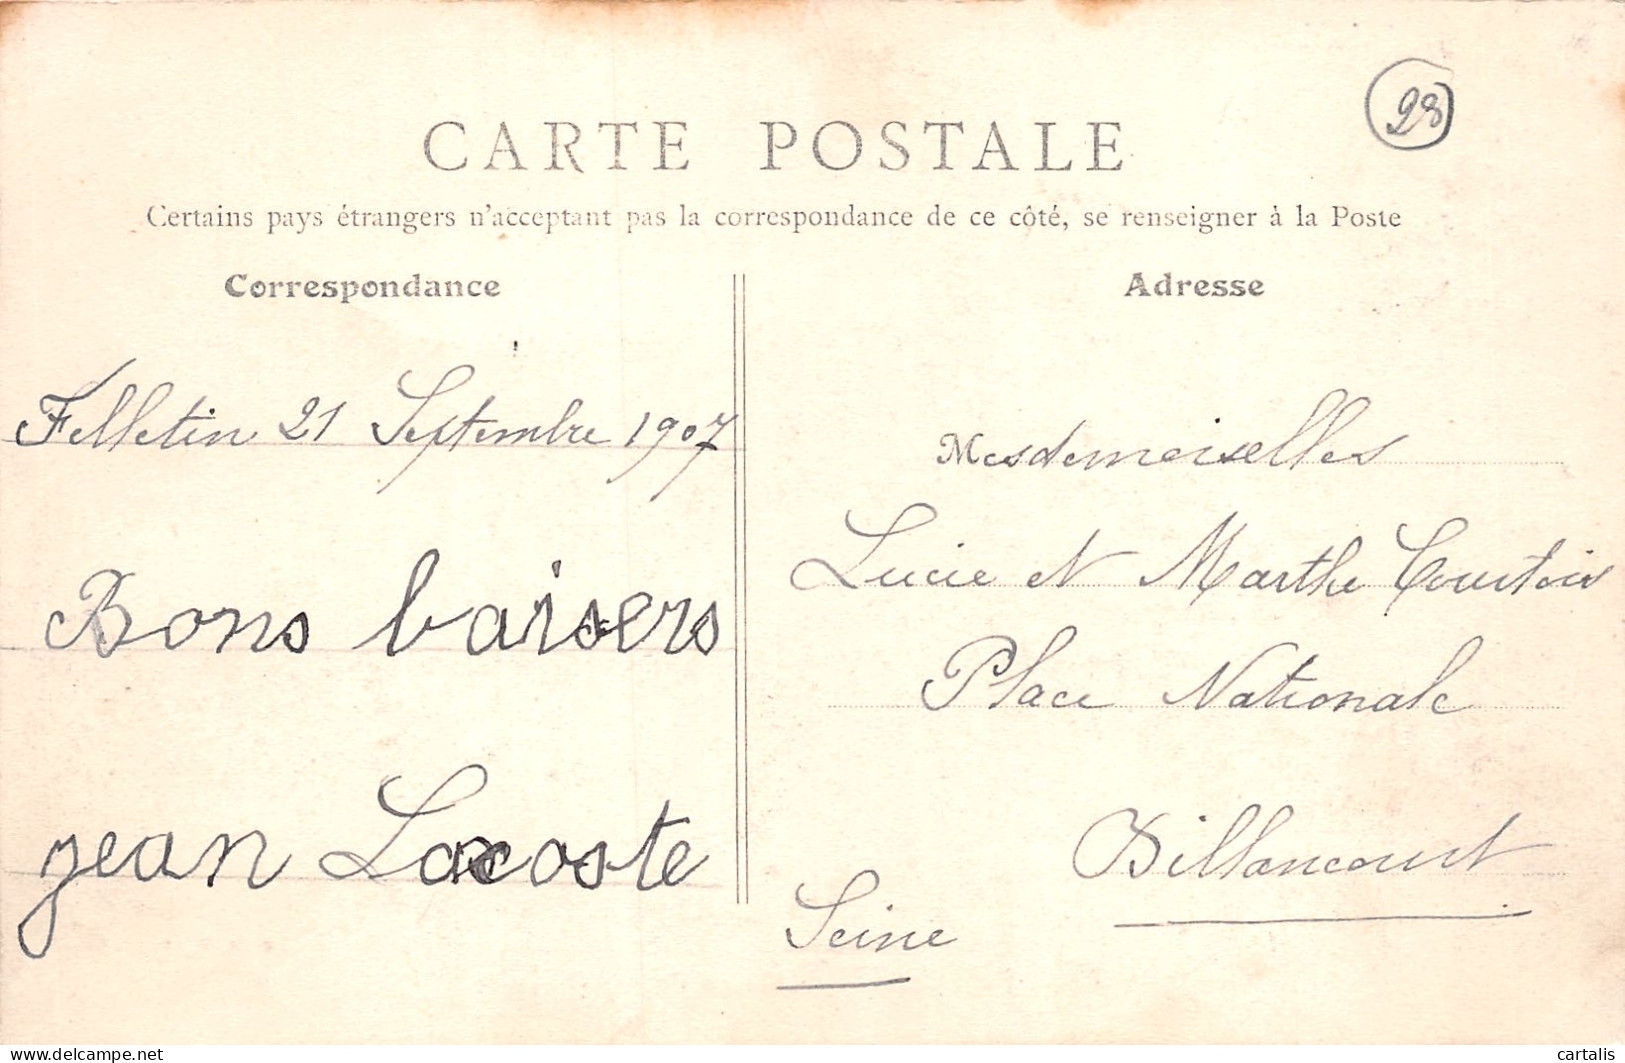 28
CARTE POSTALE
Certains pays étrangers n'acceptant pas la correspondance de ce côté, se renseigner à la Poste
Correspondance
Felletin 21 Septembre 1907
Bons baisers
jean Lacoste
Adresse
Mesdemoiselles
Lucie et Marthe Courtois
Place Nationale
Billancourt
Seine
delcampe.net
cartalis